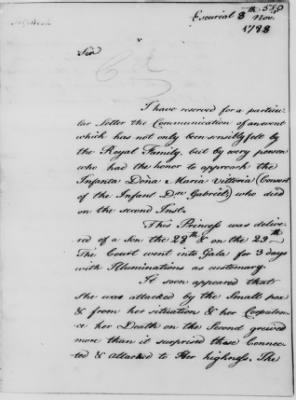 Escurial 8th Nov.
1788
Sir
I have reserved for a particu-
lar Letter the Communication of an event
which has not only been sensibly felt by
the Royal Family, but by every person
who had the honor to approach the
Infanta Doña Maria Vittoria (Consort
of the Infant Dn Gabriel) who died
on the second Inst.
This Princess was delive-
red of a Son the 28th & on the 29th
The Court went into Gala for 3 days
with Illuminations as customary.
It soon appeared that
She was attacked by the Small pox
& from her situation & her Corpulen-
ce her Death on the Second grieved
more than it surprised those Connec-
ted & attached to Her highness. The